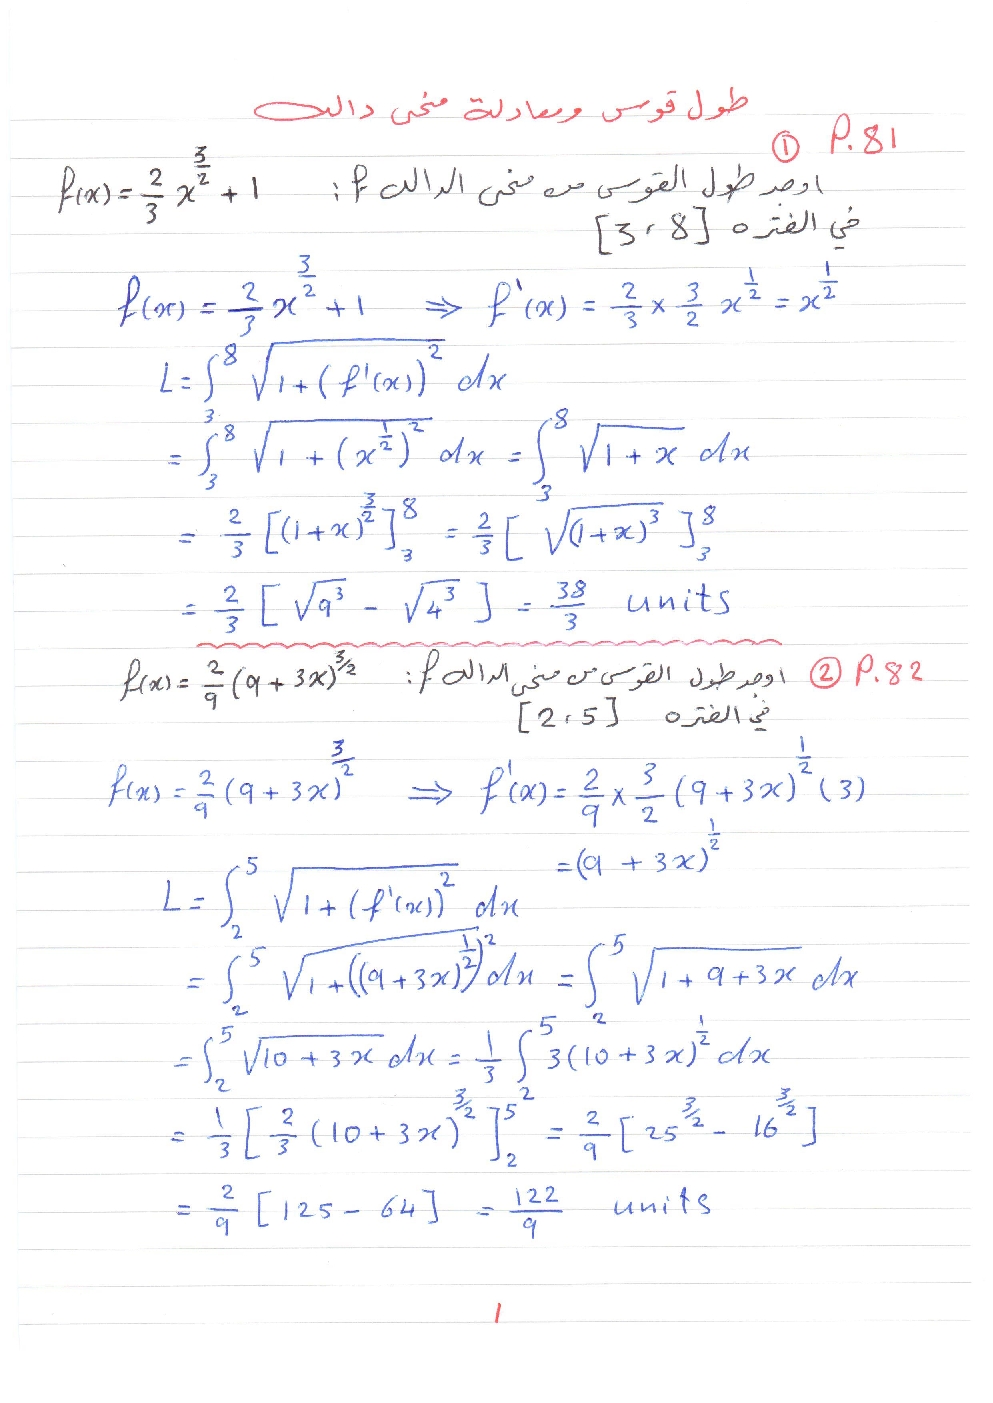 طول قوس ومعادلة منحنى دالة
P.81
① اوجد طول القوس من منحنى الداله f: f(x) = 2/3 x^(3/2) + 1
في الفتره [3, 8]
f(x) = 2/3 x^(3/2) + 1 ⇒ f'(x) = 2/3 × 3/2 x^(1/2) = x^(1/2)
L = ∫_3^8 √(1 + (f'(x))^2) dx
= ∫_3^8 √(1 + (x^(1/2))^2) dx = ∫_3^8 √(1 + x) dx
= 2/3 [(1+x)^(3/2)]_3^8 = 2/3 [√((1+x)^3)]_3^8
= 2/3 [√(9^3) - √(4^3)] = 38/3 units
P.82 ② اوجد طول القوس من منحنى الداله f: f(x) = 2/9 (9 + 3x)^(3/2)
في الفتره [2, 5]
f(x) = 2/9 (9 + 3x)^(3/2) ⇒ f'(x) = 2/9 × 3/2 (9 + 3x)^(1/2) (3)
= (9 + 3x)^(1/2)
L = ∫_2^5 √(1 + (f'(x))^2) dx
= ∫_2^5 √(1 + ((9+3x)^(1/2))^2) dx = ∫_2^5 √(1 + 9 + 3x) dx
= ∫_2^5 √(10 + 3x) dx = 1/3 ∫_2^5 3(10 + 3x)^(1/2) dx
= 1/3 [2/3 (10 + 3x)^(3/2)]_2^5 = 2/9 [25^(3/2) - 16^(3/2)]
= 2/9 [125 - 64] = 122/9 units
1